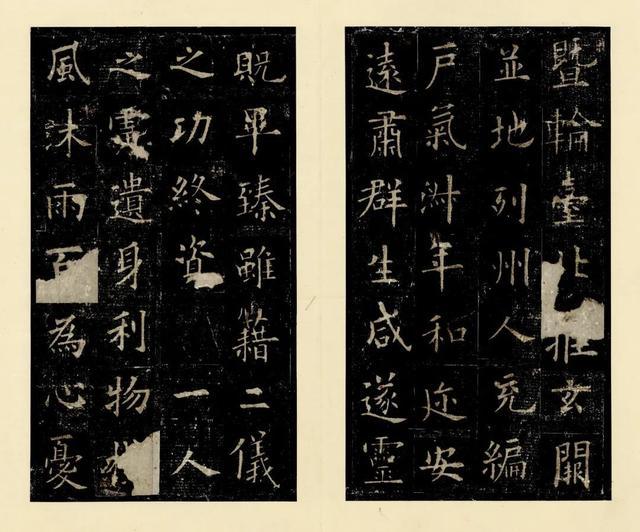 暨輪臺北玄闕
並地列州人充編
戶氣淑年和迩安
遠肅群生咸遂靈
貺畢臻雖藉二儀
之功終資一人
之慮遺身利物
風沐雨百為心憂